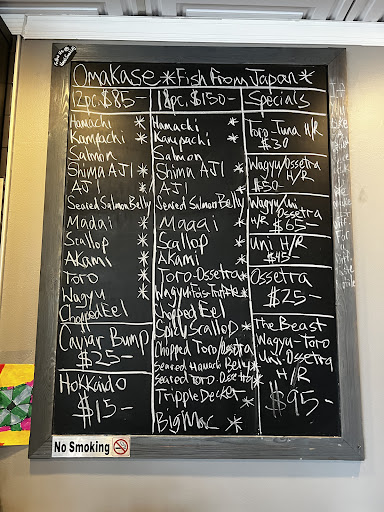 Omakase *Fish From Japan*
12pc. $85-
Hamachi *
Kampachi *
Salmon
Shima AJI *
AJI *
Seared Salmon Belly
Madai *
Scallop *
Akami *
Toro *
Wagyu *
Chopped Eel
Caviar Bump
$25-
Hokkaido
$15-
18pc. $150-
Hamachi *
Kampachi *
Salmon
Shima AJI *
AJI *
Seared Salmon Belly
Madai *
Scallop *
Akami *
Toro-Ossetra *
Wagyu-Fois-Truffle *
Chopped Eel
Spicy Scallop *
Chopped Toro/Ossetra
Seared Hamachi Belly *
Seared Toro-Ossetra *
Tripple Decker *
Big Mac *
Specials
Toro-Tuna H/R
$30
Wagyu/Ossetra
H/R
$50-
Wagyu/Uni
Ossetra
H/R $65-
Uni H/R
$45-
Ossetra
$25-
The Beast
Wagyu-Toro
Uni-Ossetra
H/R
$95-
No Smoking